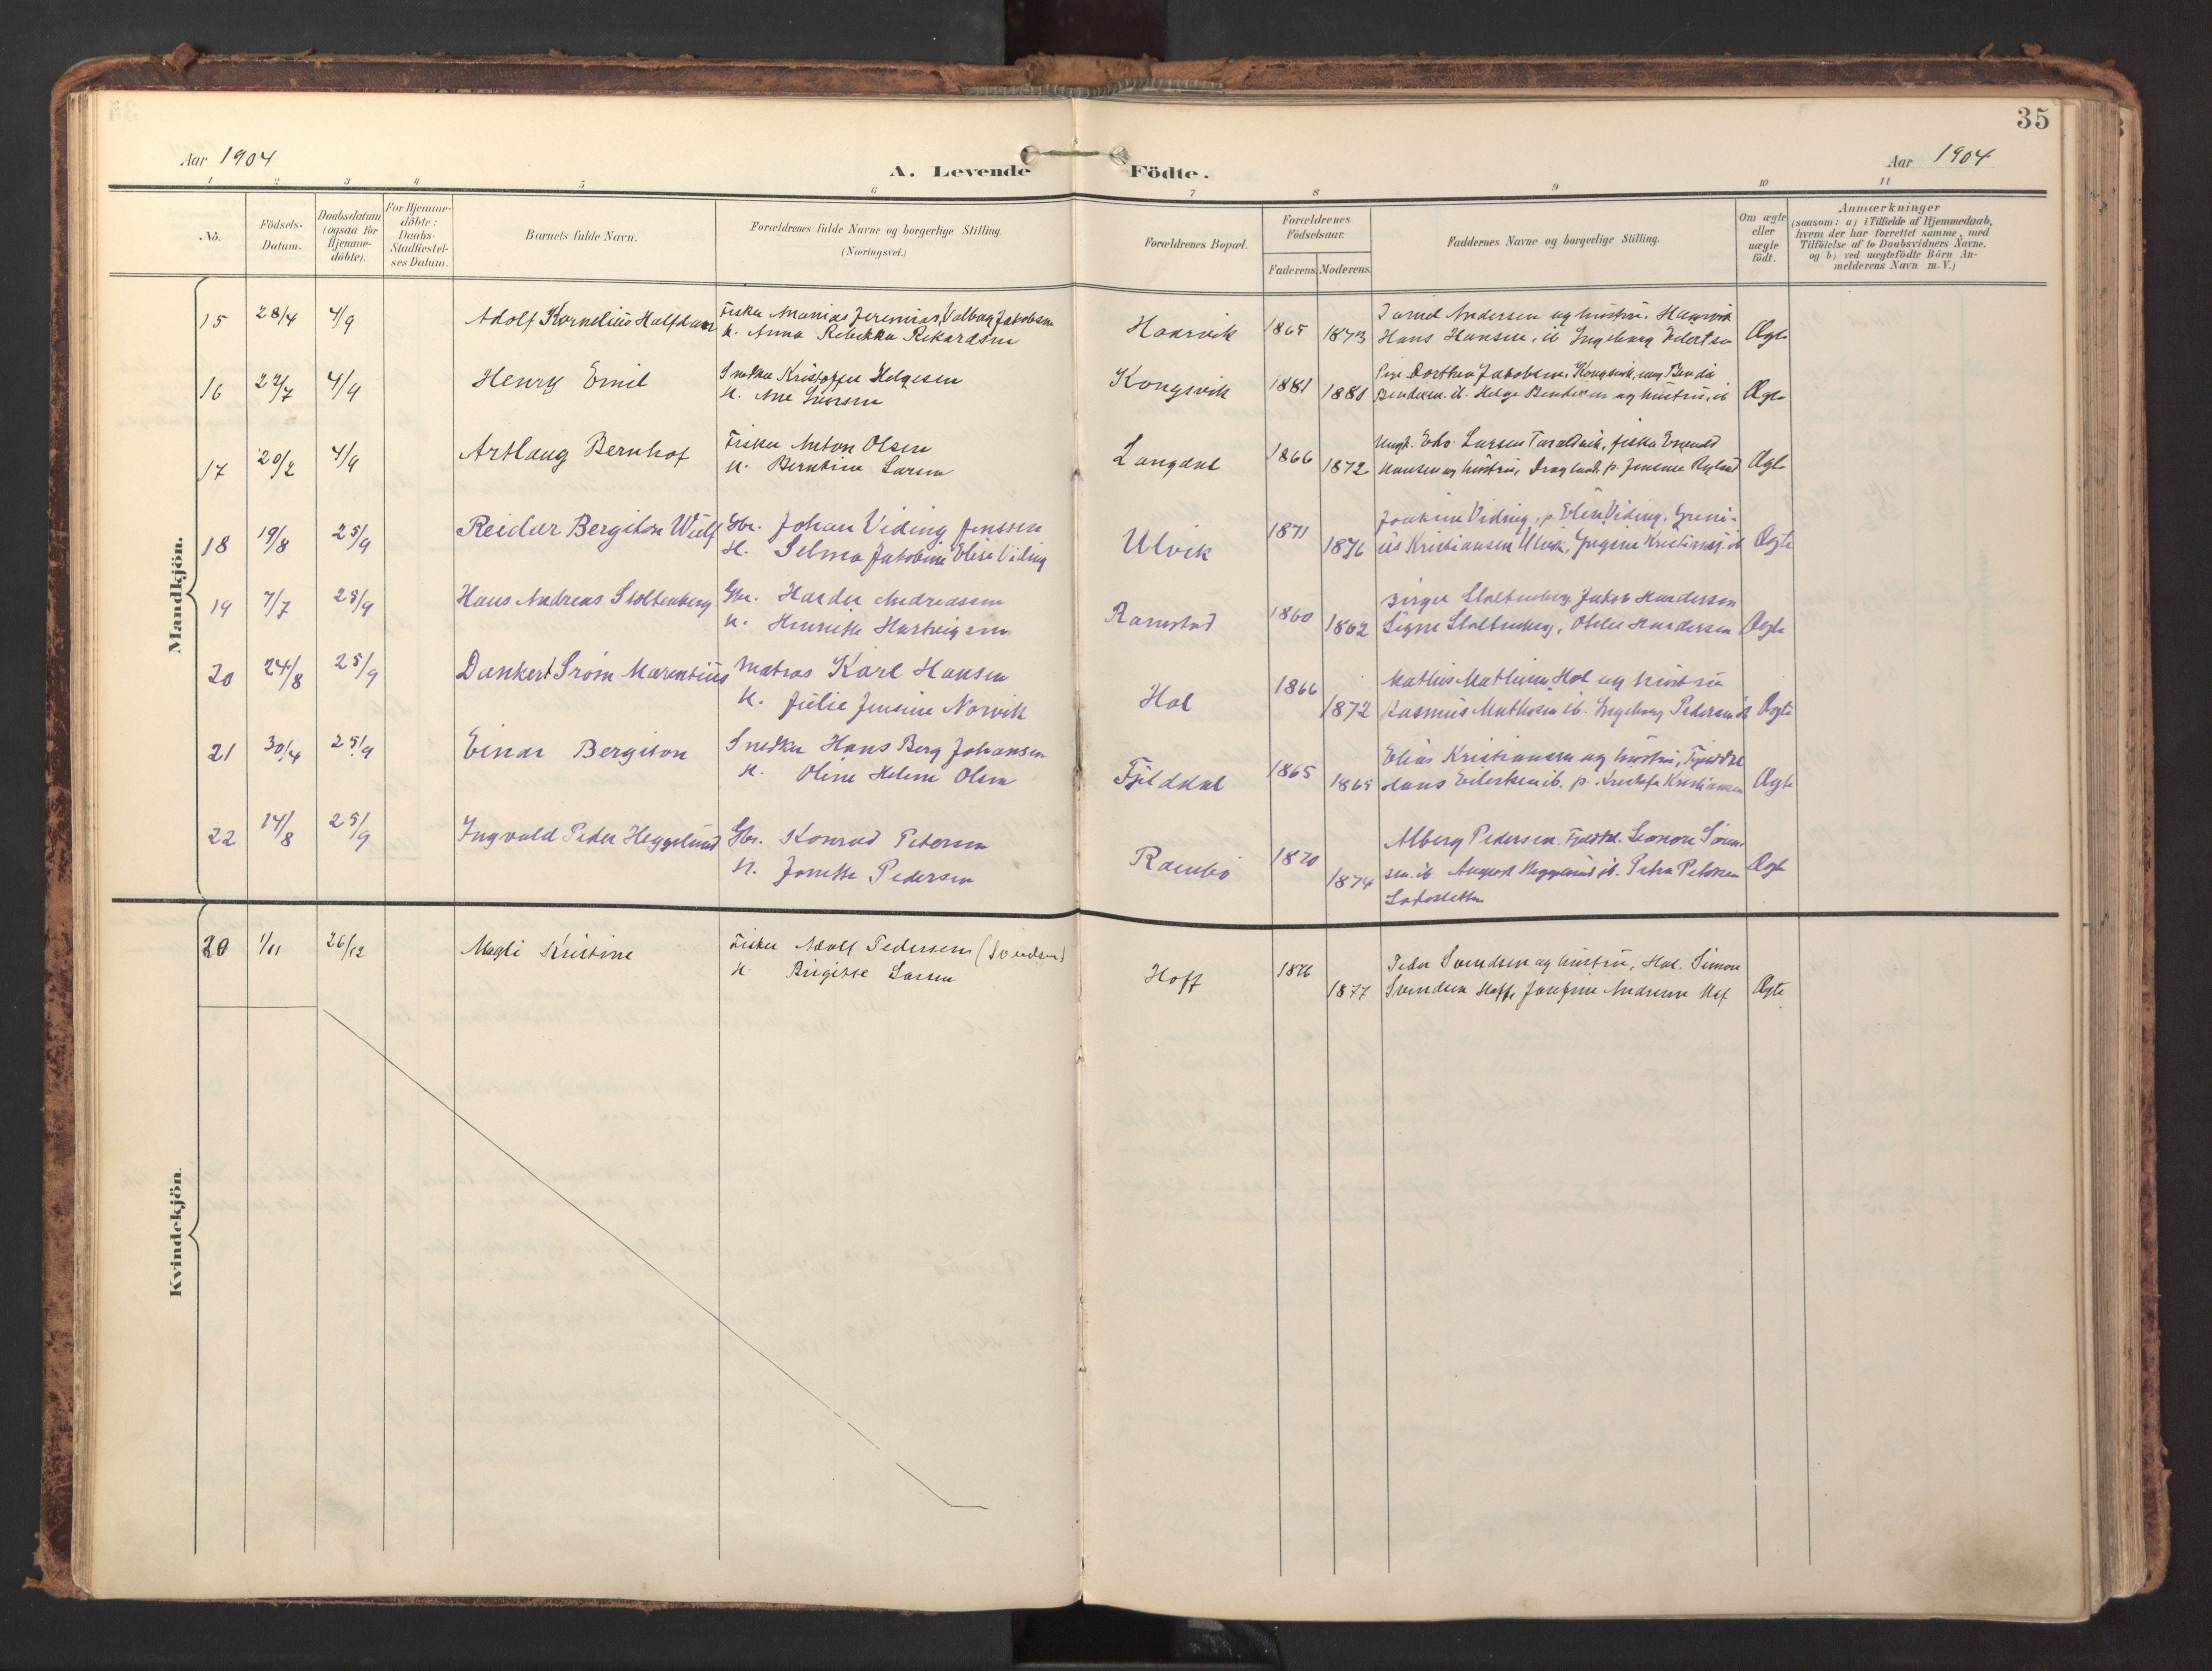 35
Aar 1904
A. Levende Födte.
Aar 1904
1 2 3 4 5 6 7 8 9 10 11
No.
Födsels-
Datum.
Daabsdatum
(ogsaa for
Hjemme-
döbte).
For Hjemme-
döbte:
Daabs-
Stadfæstel-
ses Datum.
Barnets fulde Navn.
Forældrenes fulde Navne og borgerlige Stilling.
(Næringsvei.)
Forældrenes Bopæl.
Forældrenes
Födselsaar.
Faderens. Moderens.
Faddernes Navne og borgerlige Stilling.
Om ægte
eller
uægte
födt.
Anmærkninger
(saasom: a) i Tilfælde af Hjemmedaab,
hvem der har forrettet samme, med
Tilföielse af to Daabsvidners Navne.
og b) ved uægtefödte Börn An-
melderens Navn m. V.)
Mandkjön.
15 28/4 4/9 Adolf Kornelius Halfdan Fisker Manias Jeremias Valbag Jakobsen
H. Anna Rebekka Rikardsen
Haarvik 1865 1873
Daniel Andersen og hustru, Haarvik
Hans Hansen, ib Ingeborg Eilertsen Ægte
16 22/7 4/9 Henry Emil Snedker Kristoffer Helgesen
H. Ane
Kongsvik 1881 1880
Pige Dorthea Jakobsen, Kongsvik, ung Bendik
Bendixen ib. Helge Bendixen og hustru, ib Ægte
17 20/2 4/9 Artlaug Bernhof Fisker Anton Olsen
H. Berntine Larsen
Langdal 1866 1872
Ungk. Edv. Larsen Taraldvik, fisker
Hansen og hustru, Dragland, p. Jensine Ægte
18 19/8 25/9 Reidar Bergiton Wulf Gbr. Johan Viding Jenssen
H. Selma Jakobine Elise Viding
Ulvik 1871 1876
Joakim Viding, p. Elise Viding,
Kristiansen Ulvik, Ægte
19 7/7 25/9 Hans Andreas Stoltenberg Gbr. Harder Andreassen
H. Henrikke Hartvigsen
Ramstad 1860 1862
Birger Stoltenberg, Jakob Hardersen
Signe Stoltenberg, Otelie Hardersen Ægte
20 24/8 25/9 Dankert Srøm Marentius Matros Karl Hansen
H. Julie Jensine Norvik
Hol 1866 1872
Mathis Mathisen Hol og hustru
Rasmus Mathisen ib. Ingeborg Pedersen ib Ægte
21 30/4 25/9 Einar Bergiton Snedker Hans Berg Johansen
H. Oline Helene Olsen
Fjelddal 1865 1865
Elias Kristiansen og hustru, Fjelddal
Hans Eilertsen ib. p. Kristofa Kristiansen Ægte
22 14/8 25/9 Ingvald Peder Heggelund Gbr. Konrad Petersen
H. Jonette Pedersen
Rambø 1870 1874
Alberg Pedersen Fjelddal. Leonore Sören-
sen. ib August Heggelund ib. Petra Petersen Ægte
Kvindekjön.
20 1/11 26/12 Magli Kristine Fisker Adolf Pedersen (Svendsen)
H. Birgitte Larsen
Hoff 1876 1877
Peder Svendsen og hustru, Hol. Simon
Svendsen Hoff, Josefine Andresen Hof Ægte